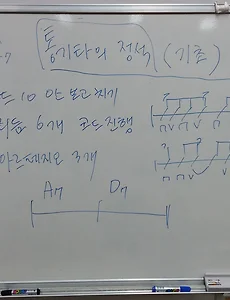 통기타의 정석 (기초)
10 안 보고 치기
리듬 6개 코드진행
아르페지오 3개
A7 D7